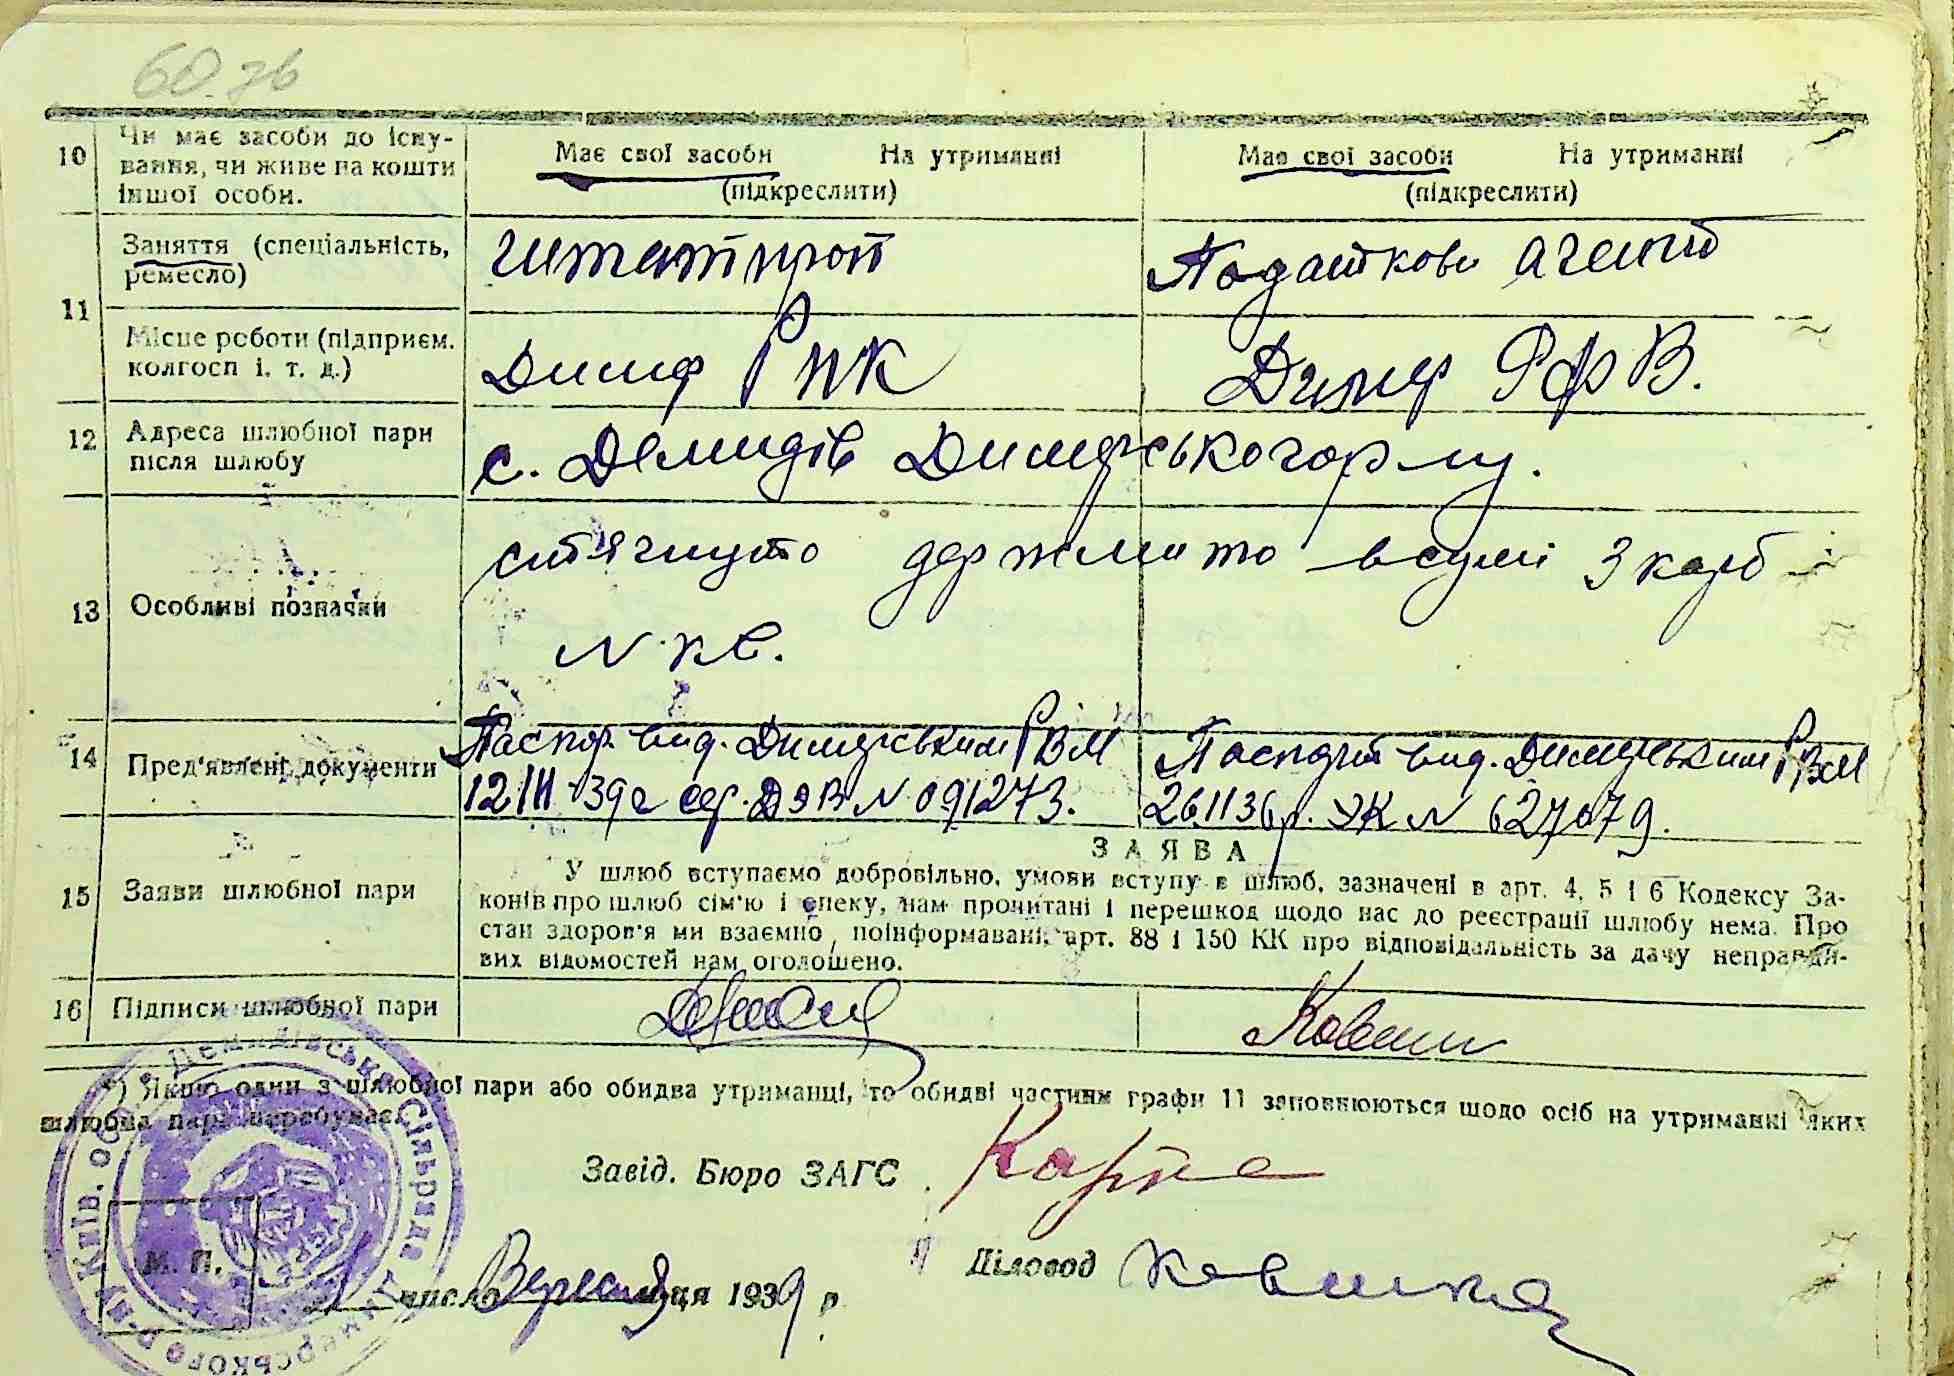 60 зв
10 Чи має засоби до існу-
вання, чи живе на кошти
іншої особи.
Має свої засоби На утриманні
(підкреслити)
Має свої засоби На утриманні
(підкреслити)
11 Заняття (спеціальність,
ремесло)
штатпроп
Податкови агент
Місце роботи (підприєм.
колгосп і. т. д.)
Димер РПК
Димер РФВ.
12 Адреса шлюбної пари
після шлюбу
с. Демидів Димерського р-ну.
13 Особливі позначки
стягнуто держмито в сумі 3 карб
N кв.
14 Пред'явлені документи
Паспор. вид. Димерським РВМ
12/III 39 р. сер. N 091273.
Паспорт вид. Димерським РВМ
26.11 36 р. УК N 627079.
15 Заяви шлюбної пари
ЗАЯВА
У шлюб вступаємо добровільно, умови вступу в шлюб, зазначені в арт. 4, 5 і 6 Кодексу За-
конів про шлюб сім'ю і опеку, нам прочитані і перешкод щодо нас до реєстрації шлюбу нема. Про
стан здоров'я ми взаємно поінформавані, арт. 88 і 150 КК про відповідальність за дачу неправди-
вих відомостей нам оголошено.
16 Підписи шлюбної пари
*) Якщо один з шлюбної пари або обидва утриманці, то обидві частини графи 11 заповнюються щодо осіб на утриманні яких
шлюбна пара перебуває.
Завід. Бюро ЗАГС
М. П.
число Вересня м-ця 1939 р.
Діловод
Демидівська Сільрада Димерського р-ну Київ. обл.